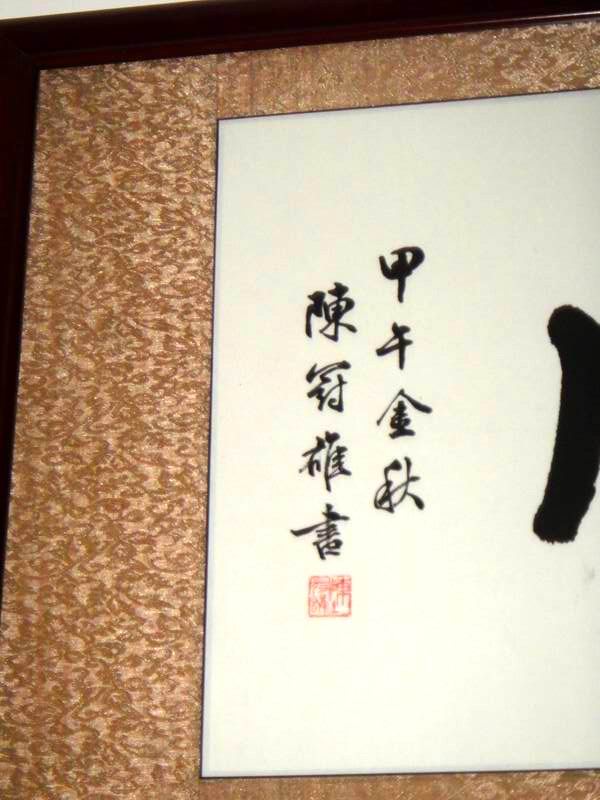 甲午金秋
陳冠雄書